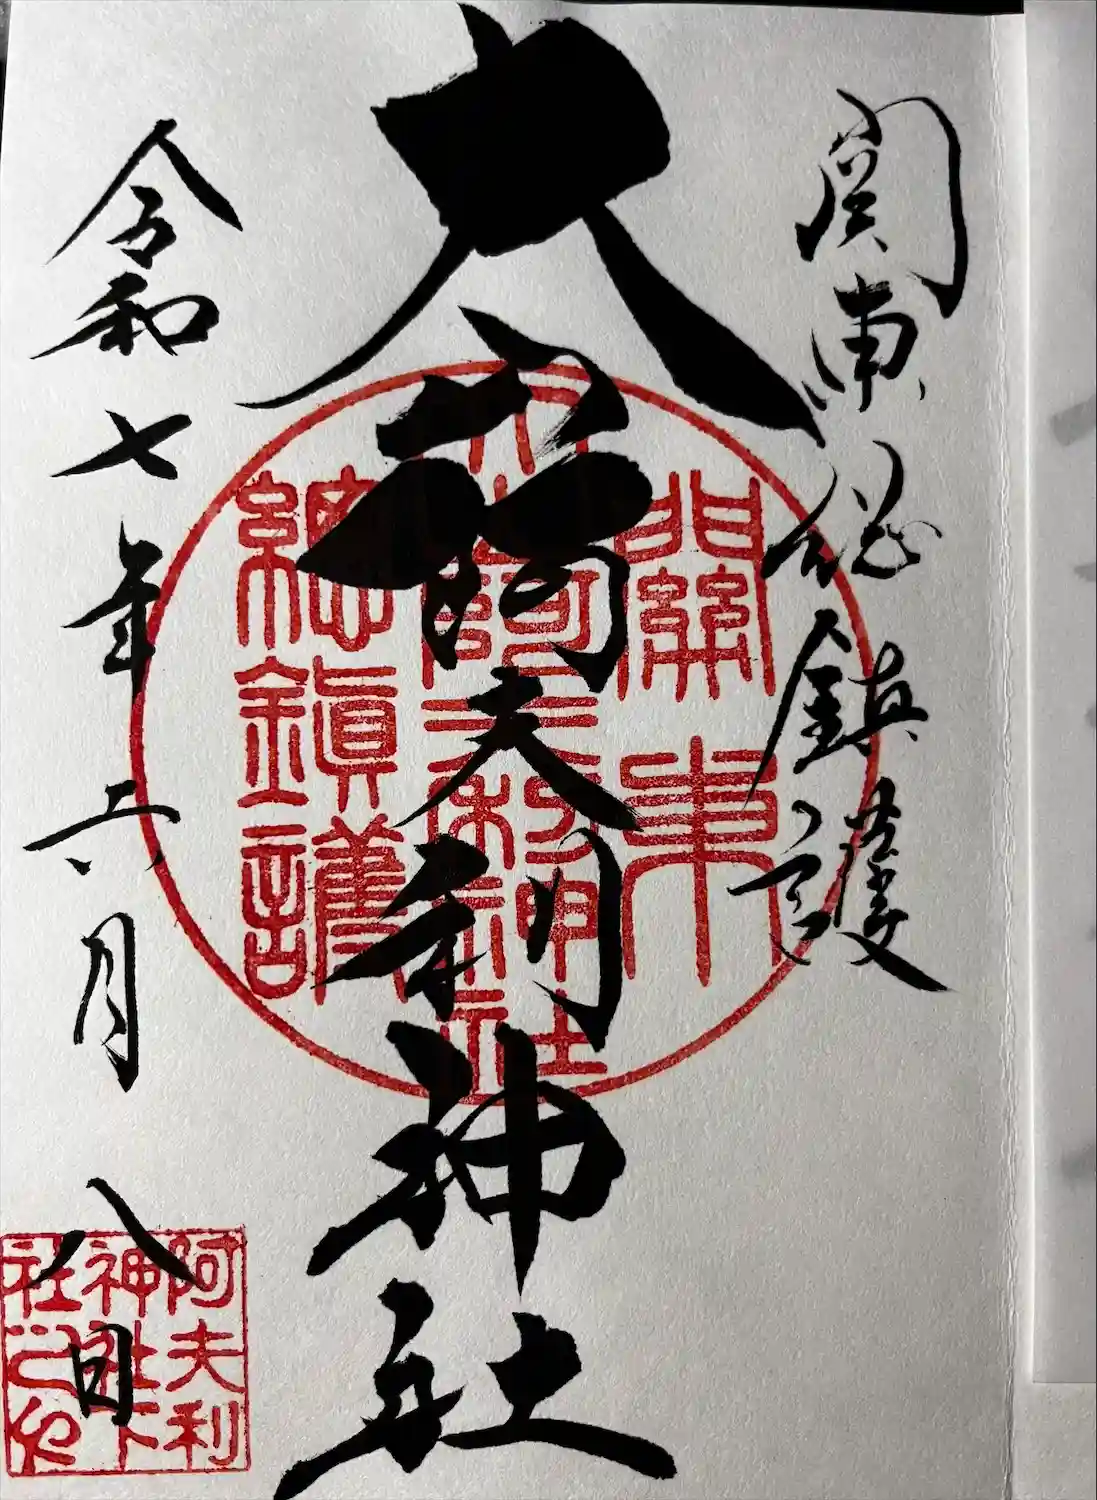 関東総鎮護
大山阿夫利神社
令和七年六月八日
關東
大山阿夫利神社
總鎭護
阿夫利
神社下
社之印